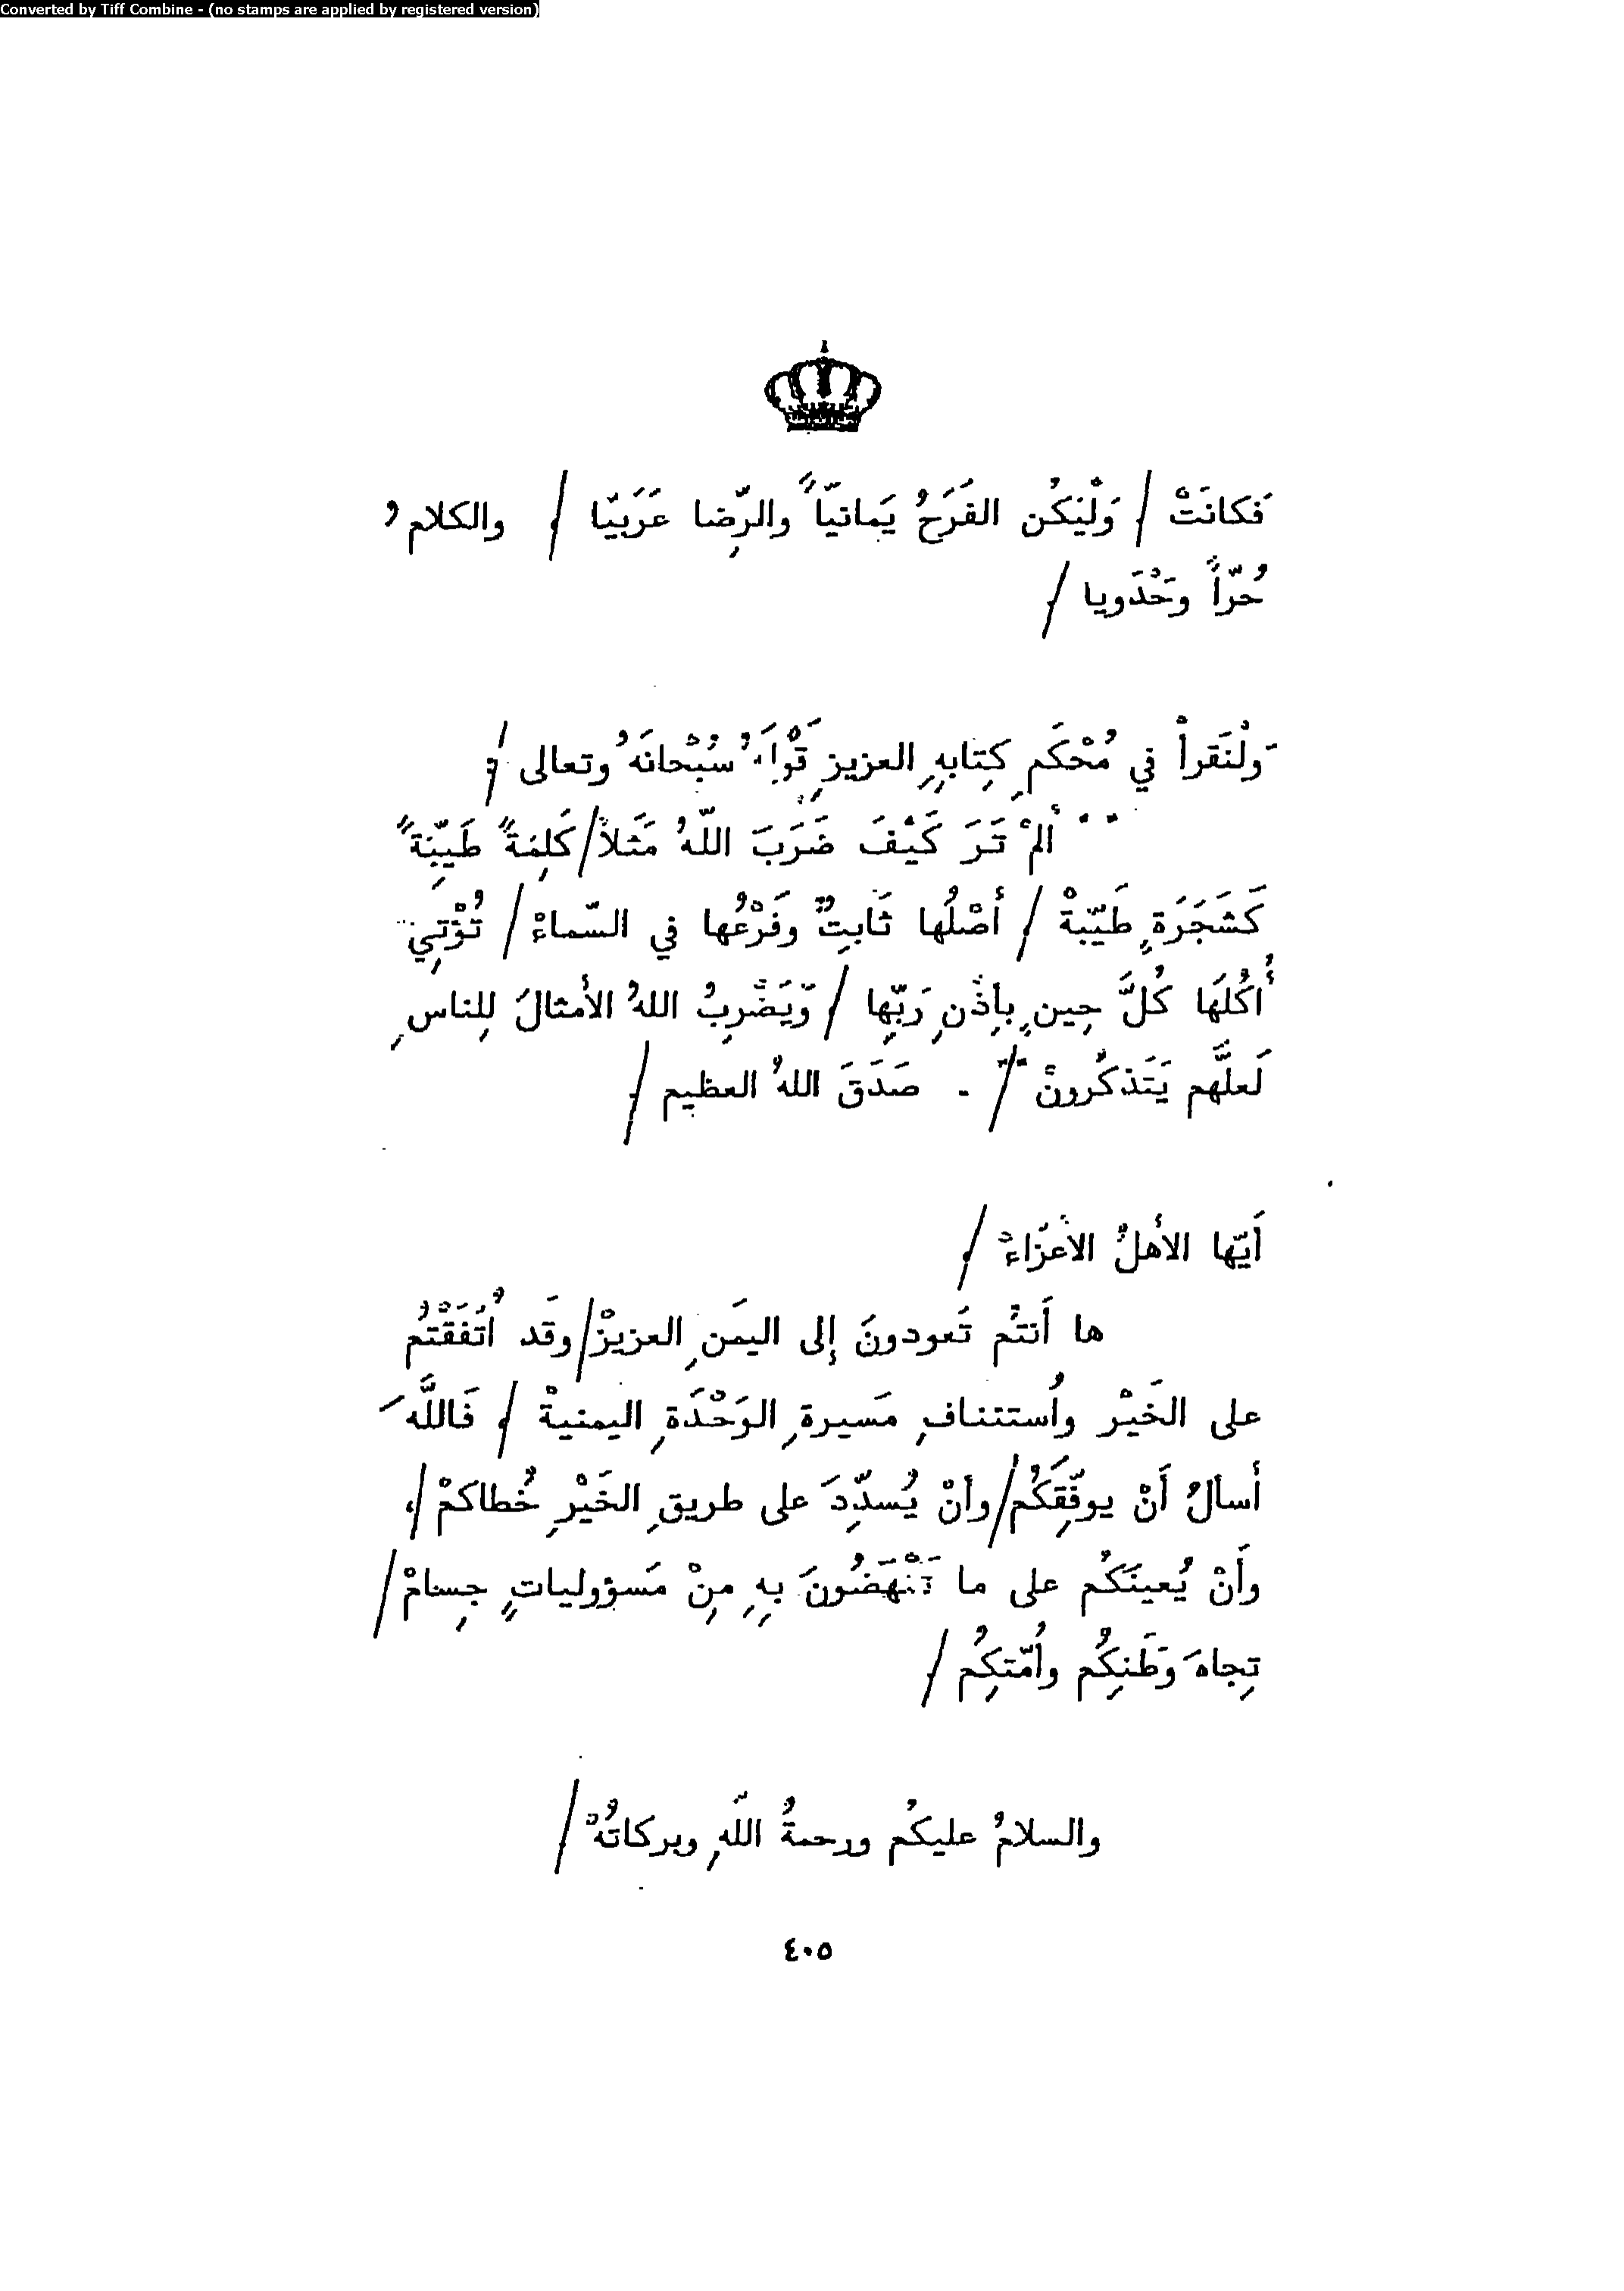 Converted by Tiff Combine - (no stamps are applied by registered version)
فَكانَتْ / وَلْيَكُن الفَرَحُ يَمانيّاً والرِّضا عَرَبيّا / والكلامُ
حُرّاً وَحْدَويا /
وَلْنَقرأْ في مُحْكَمِ كِتابِهِ العزيزِ قَوْلَهُ سُبْحانَهُ وتعالى /
" أَلمْ تَرَ كَيْفَ ضَرَبَ اللّهُ مَثَلاً / كَلِمَةً طَيِّبَةً
كَشَجَرَةٍ طَيّبةْ / أَصْلُها ثَابِتٌ وفَرْعُها في السّماءْ / تُؤْتِي
أُكُلَها كُلَّ حِينٍ بإِذْنِ رَبِّها / وَيَضْرِبُ اللهُ الأَمثالَ لِلناسِ
لَعلَّهم يَتَذكّرونْ " / . صَدَقَ اللهُ العظيم /
أَيّها الأَهلُ الأَعزّاءْ /
ها أَنتُم تَعودونَ إِلى اليَمَنِ العزيزْ / وقَد اُتّفَقْتُم
على الخَيْر واُستئنافِ مَسيرةِ الوَحْدَةِ اليمنيةْ / فَاللَّهَ
أَسألُ أَنْ يوفّقَكُم / وأَنْ يُسدِّدَ على طريقِ الخَيْرِ خُطاكمْ /
وأَنْ يُعينَكُم على ما تَنْهَضُونَ بِهِ مِنْ مَسؤولياتٍ جِسامْ /
تِجاهَ وَطَنِكُم واُمّتِكُم /
والسلامُ عليكُم ورحمةُ اللّهِ وبركاتُهْ /
٤٠٥